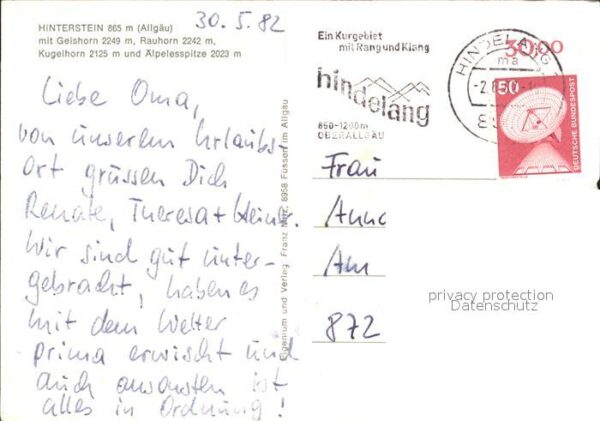 HINTERSTEIN 865 m (Allgäu)
mit Geishorn 2249 m, Rauhorn 2242 m,
Kugelhorn 2125 m und Älpelesspitze 2023 m
30.5.82
Liebe Oma,
von unserem Urlaubs-
Ort grüssen Dich
Renate, Theresa +
Wir sind gut unter-
gebracht, haben es
mit dem Wetter
prima erwischt und
auch ansonsten ist
alles in Ordnung!
Eigentum und Verlag Franz Milz, 8958 Füssen im Allgäu
Ein Kurgebiet
mit Rang und Klang
hindelang
850-1200m
OBERALLGÄU
HINDELANG
ma
30,00
50
DEUTSCHE BUNDESPOST
Frau
Anna
Am
872
privacy protection
Datenschutz